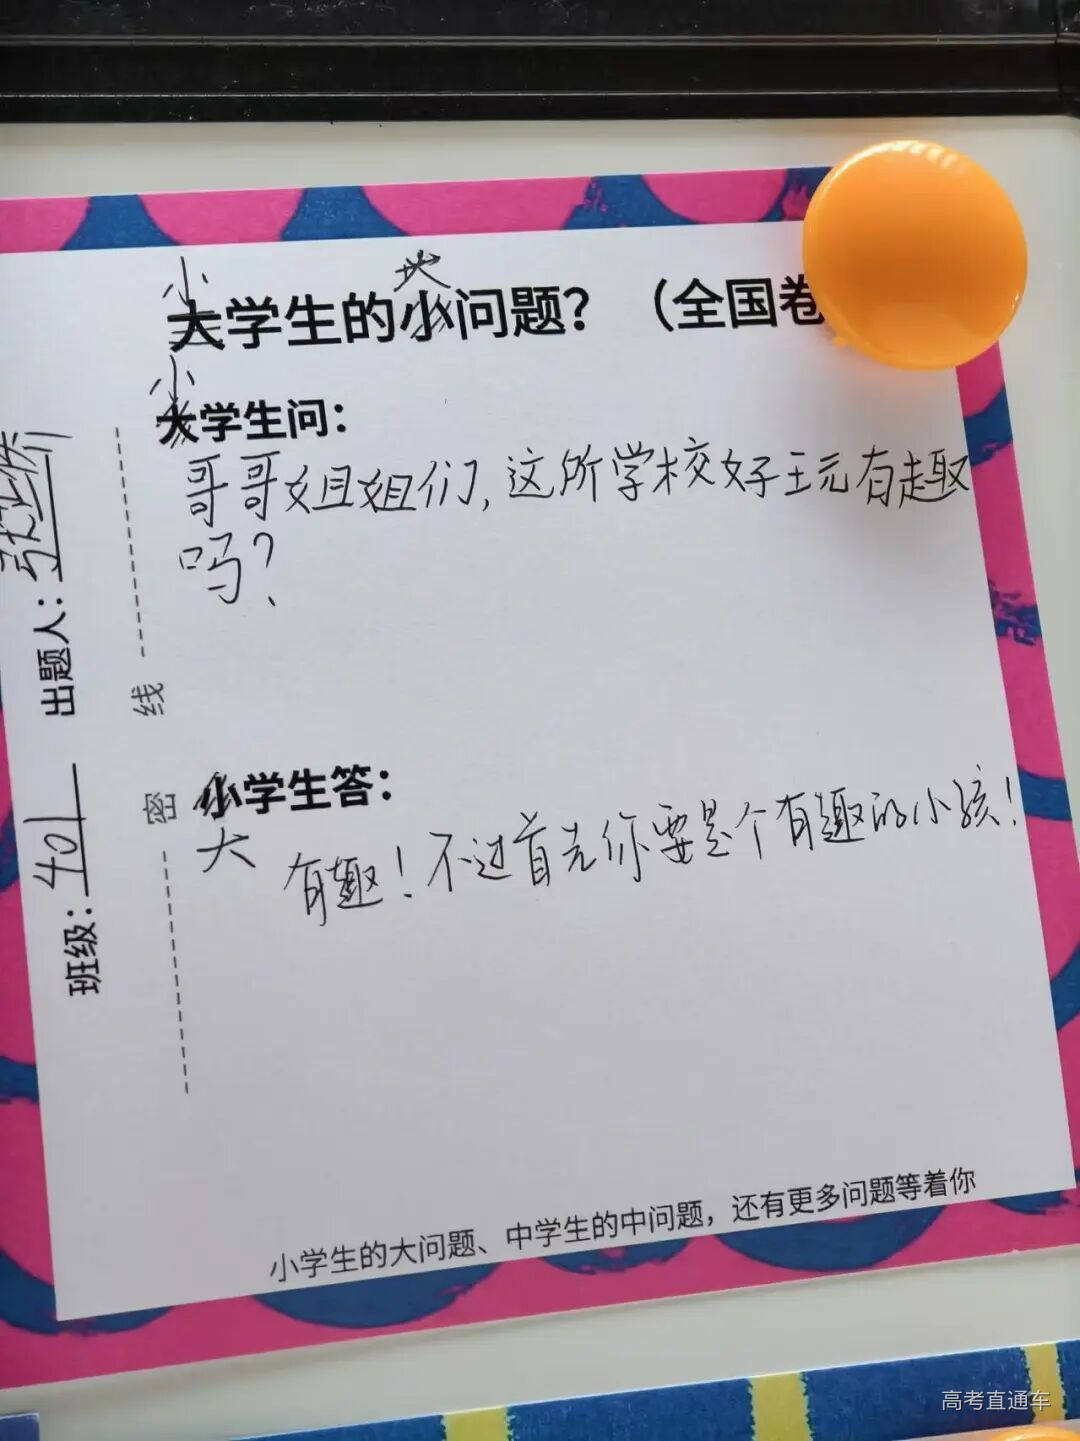 小 大
大学生的小问题？（全国卷
小
大学生问：
哥哥姐姐们，这所学校好玩有趣
吗？
小学生答：
大
有趣！不过首先你要是个有趣的小孩！
小学生的大问题、中学生的中问题，还有更多问题等着你
班级：401 出题人：
密 线
高考直通车